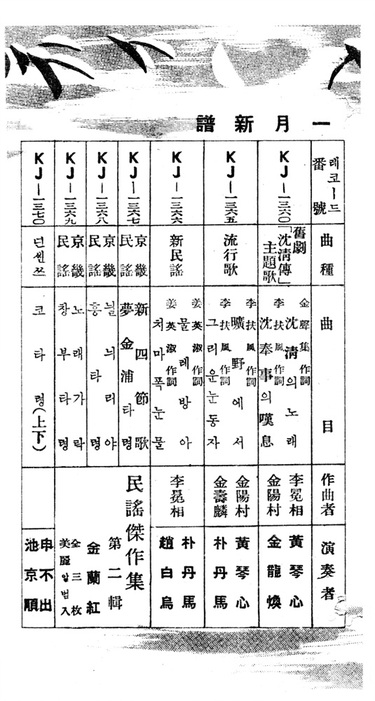 一月新譜
레코ー드番號
曲種
曲目
作曲者
演奏者
KJ―一三六〇
舊劇
「沈淸傳」
主題歌
作詞
沈淸의노래
李扶風作詞
沈奉事의嘆息
李冕相
金陽村
黃琴心
金龍煥
KJ―一三六五
流行歌
李扶風作詞
曠野에서
李扶風作詞
그리운눈동자
金陽村
金壽麟
黃琴心
朴丹馬
KJ―一三六六
新民謠
姜英淑作詞
물레방아
姜英淑作詞
치마폭눈물
李冕相
朴丹馬
趙白烏
KJ―一三六七
京畿民謠
新四節歌
夢金浦타령
KJ―一三六八
京畿民謠
늴늬리야
흥타령
KJ―一三六九
京畿民謠
노래가락
창부타령
民謠傑作集
第二輯
金蘭紅
全三枚
美麗알범入
KJ―一三七〇
넌센쓰
코타령(上下)
申不出
池京順